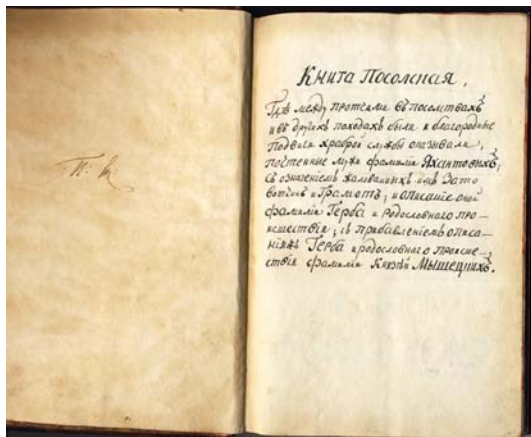 Книга Посолская,
Гдѣ между протчими въ посолствахъ
и въ другихъ походахъ были и благородные
подвиги храброй службы оказывали,
почтенные мужи фамилии Яхантовыхъ;
съ означениемъ жалованныхъ имъ за то
вотчинъ и Грамотъ; и описание оной
фамилии Герба и родословного про-
исшествия; съ прибавлениемъ описа-
ния Герба и родословного происше-
ствия фамилии Князей Мышецкихъ.